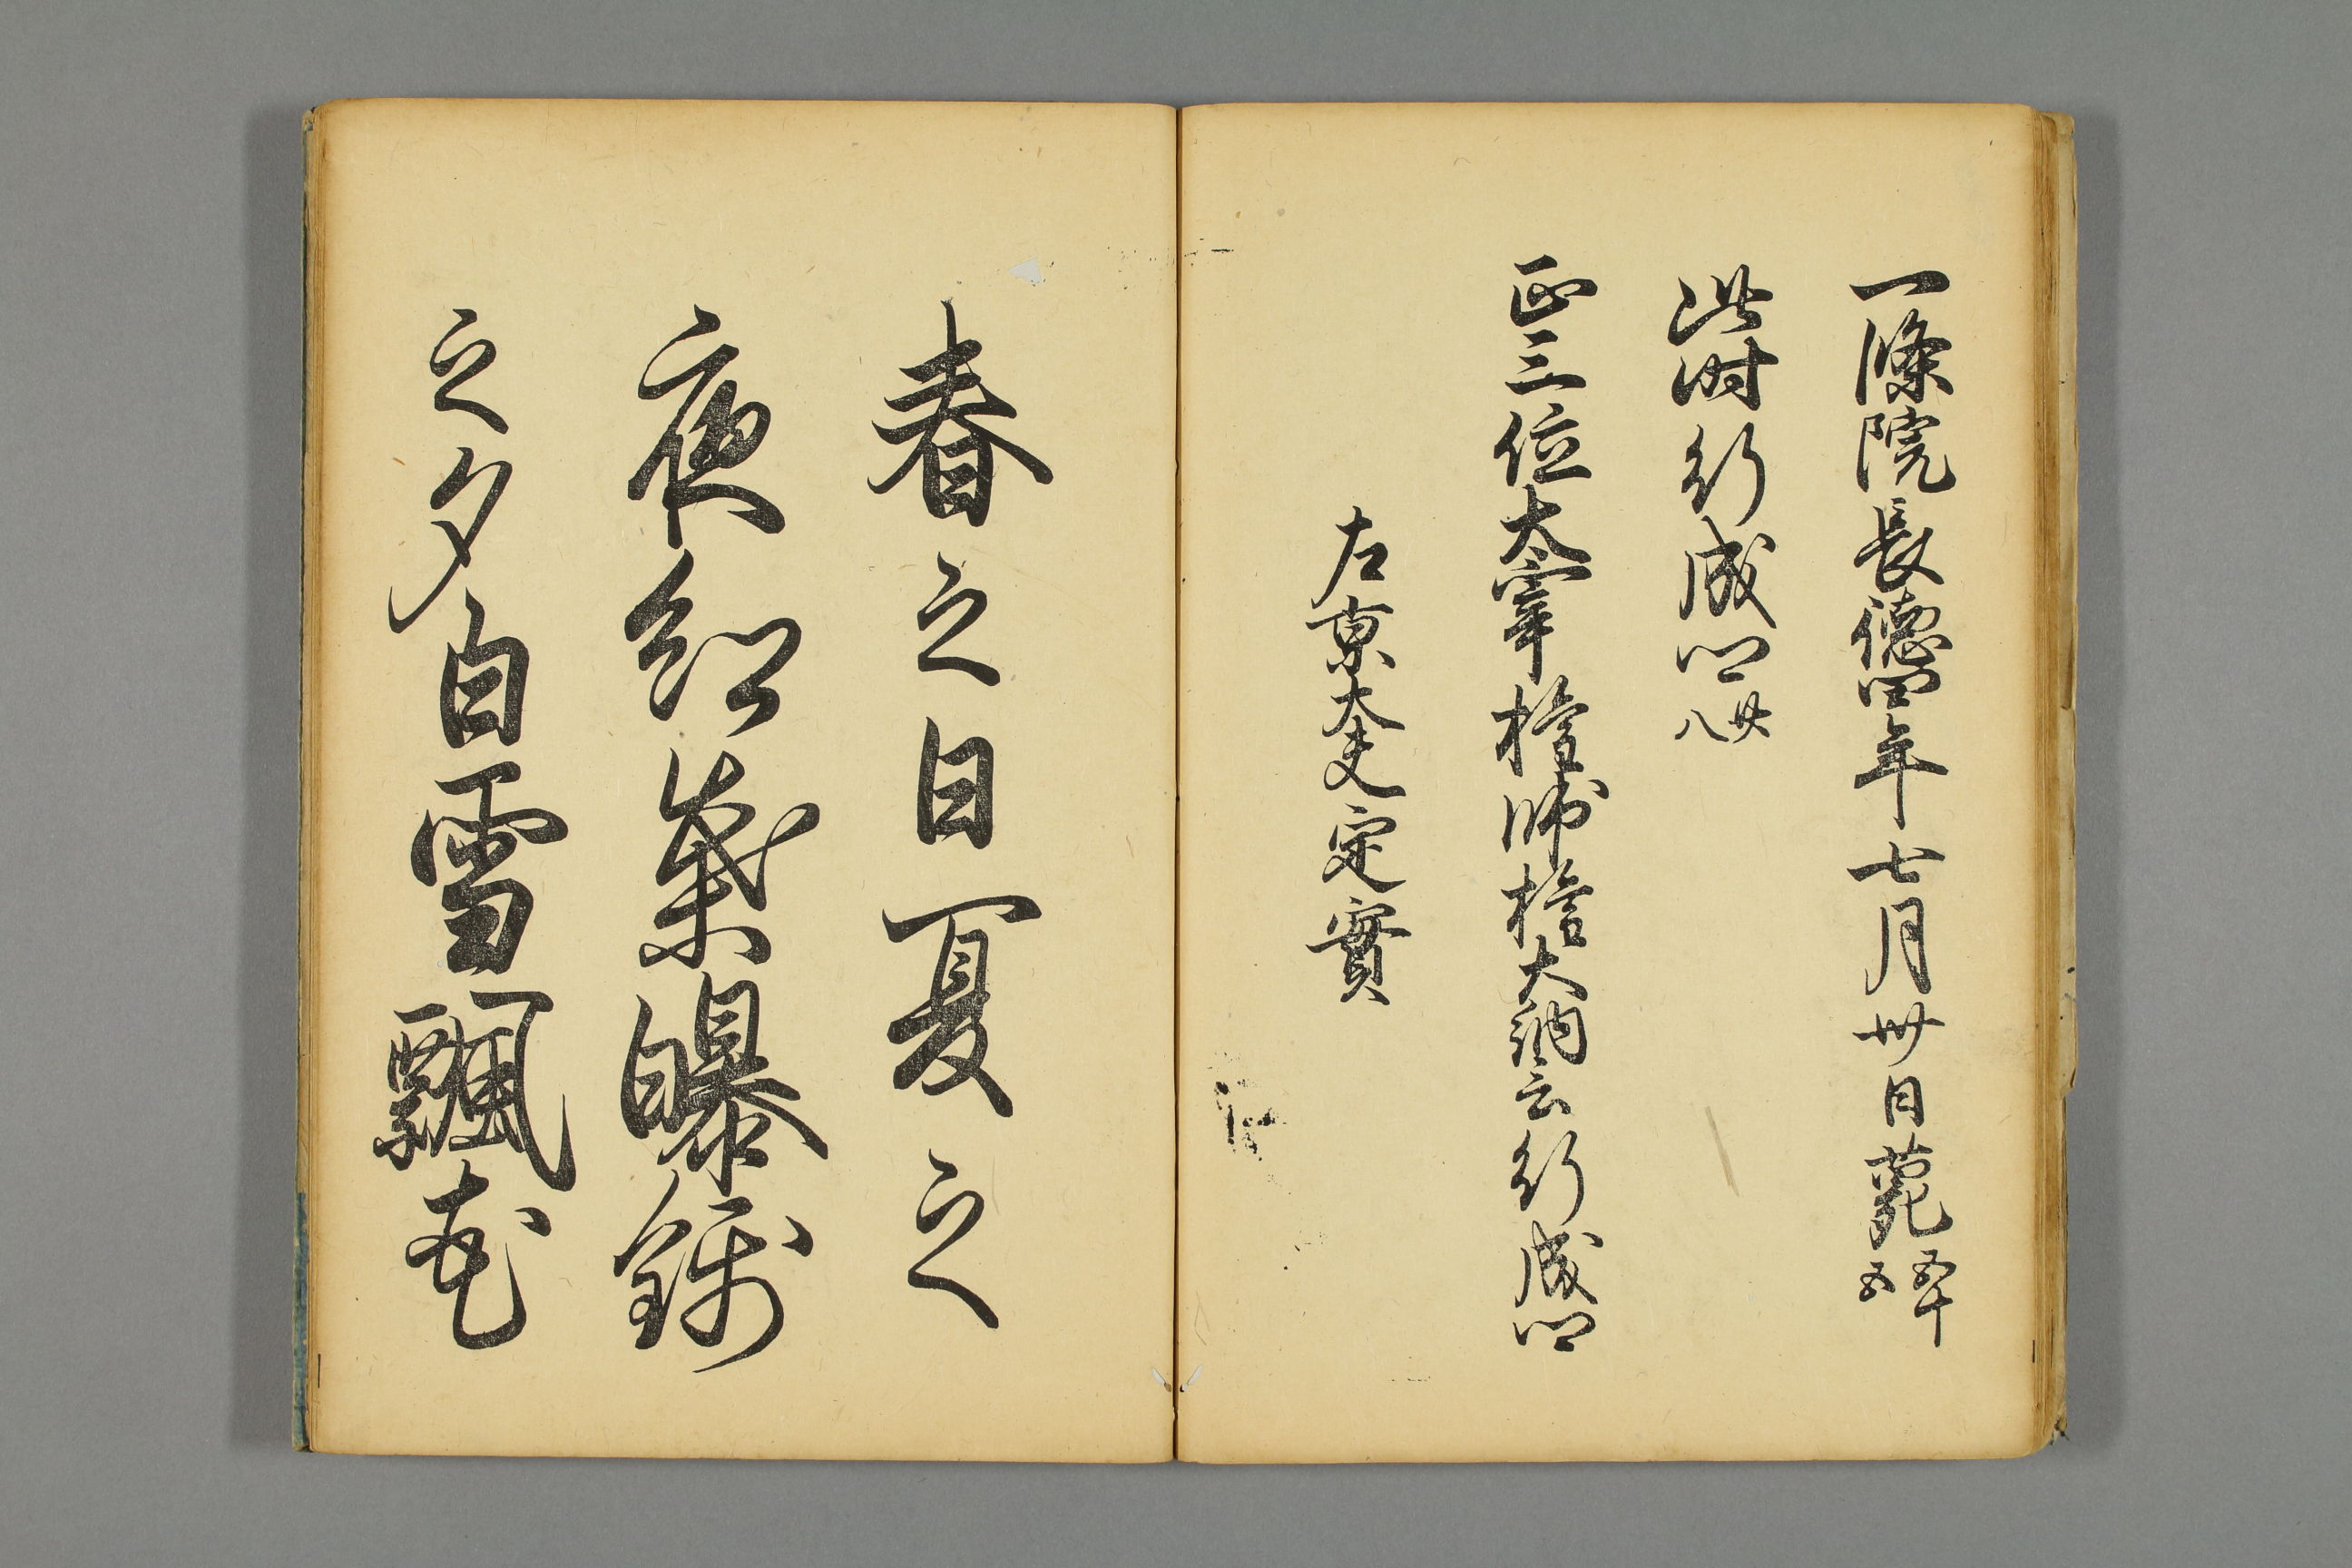 一條院長德四年七月卅日薨 年五十五
此時行成卿廿八
正三位大宰權帥權大納言行成卿
左京大夫定實
春之日夏之
夜紅葉曝錦
之夕白雪飄花